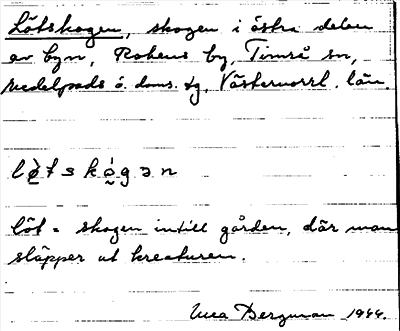 Lötskogen, skogen i östra delen
av byn, Rokens by, Timrå sn,
Medelpads ö. doms. tg, Västernorrl. län.
lø̀tskógən
löt = skogen intill gården, där man
släpper ut kreaturen.
Bergman 1944.